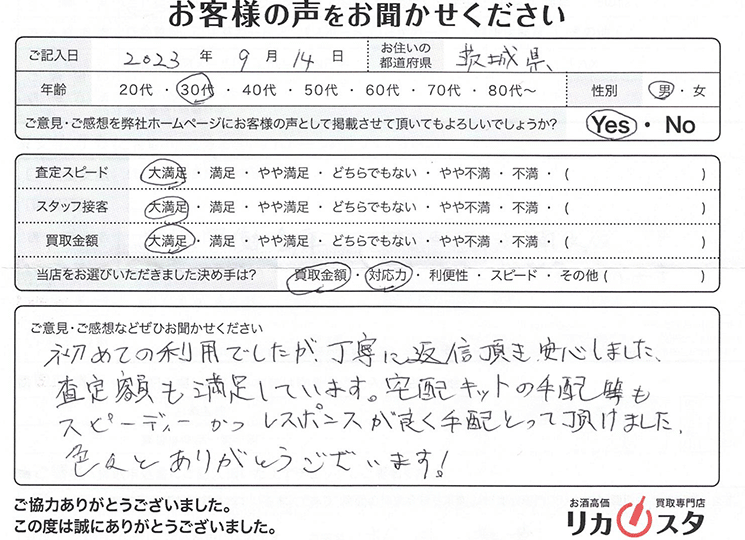 お客様の声をお聞かせください
ご記入日 2023 年 9 月 14 日 お住いの都道府県 茨城県
年齢 20代・30代・40代・50代・60代・70代・80代〜 性別 男・女
ご意見・ご感想を弊社ホームページにお客様の声として掲載させて頂いてもよろしいでしょうか? Yes・No
査定スピード 大満足・満足・やや満足・どちらでもない・やや不満・不満・( )
スタッフ接客 大満足・満足・やや満足・どちらでもない・やや不満・不満・( )
買取金額 大満足・満足・やや満足・どちらでもない・やや不満・不満・( )
当店をお選びいただきました決め手は? 買取金額・対応力・利便性・スピード・その他( )
ご意見・ご感想などぜひお聞かせください
初めての利用でしたが、丁寧に返信頂き安心しました、
査定額も満足しています。宅配キットの手配等も
スピーディーかつレスポンスが良く手配とって頂けました、
色々とありがとうございます!
ご協力ありがとうございました。
この度は誠にありがとうございました。
お酒高価 買取専門店
リカスタ